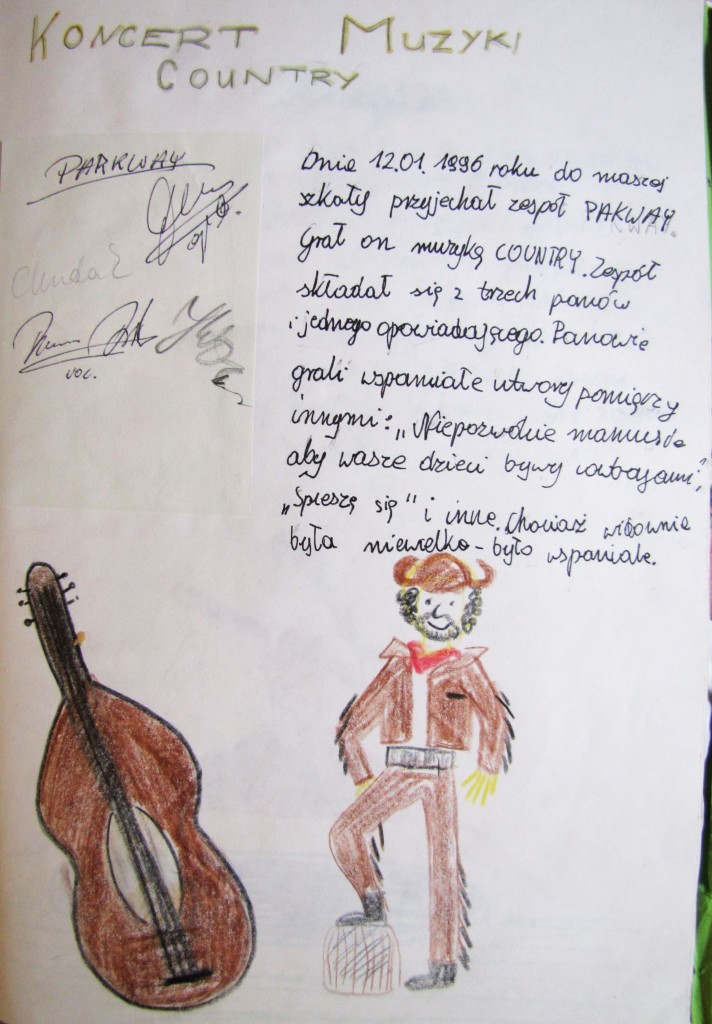 KONCERT MUZYKI
COUNTRY
PARKWAY
voc.
Dnia 12.01.1996 roku do naszej
szkoły przyjechał zespół PAKWAY
KWAY.
Grał on muzykę COUNTRY. Zespół
składał się z trzech panów
i jednego opowiadającego. Panowie
grali wspaniałe utwory pomięrzy
innymi: „Niepozwólcie mamusie
aby wasze dzieci bywy
„Śpieszę się" i inne. Chowiaż widownia
była niewielka - było wspaniale.